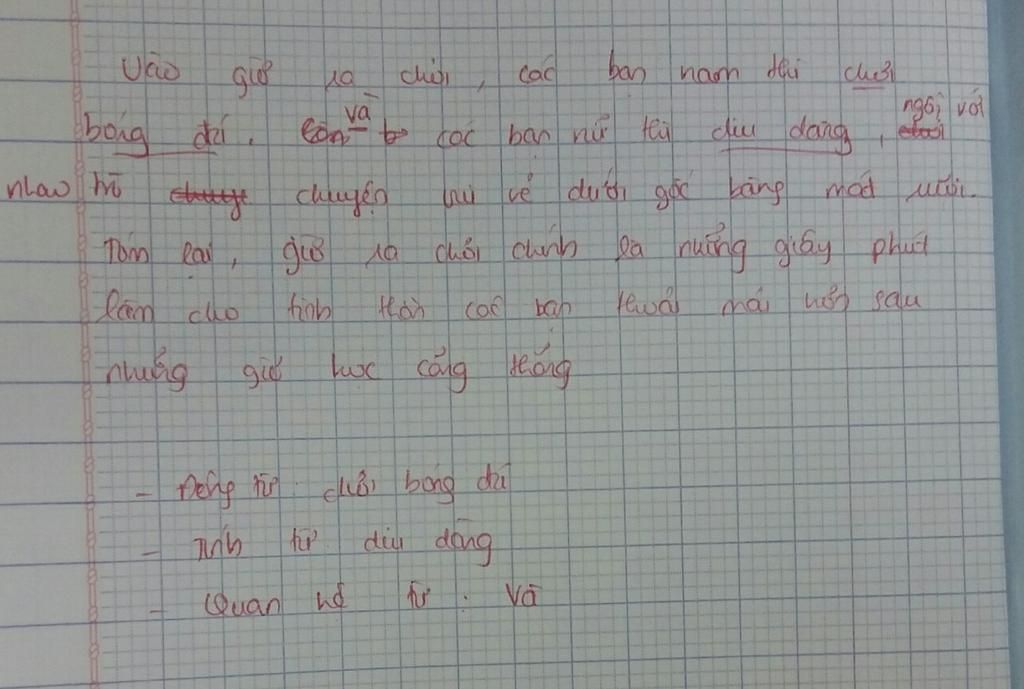 Vào giờ ra chơi, các bạn nam thì chơi
bóng đá. và các bạn nữ thì dịu dàng, ngồi với
nhau trò chuyện vui vẻ dưới gốc bàng mát rượi.
Tóm lại, giờ ra chơi chính là những giây phút
làm cho tinh thần các bạn thoải mái hơn sau
những giờ học căng thẳng
- Động từ: chơi bóng đá
- Tính từ dịu dàng
- Quan hệ từ: và